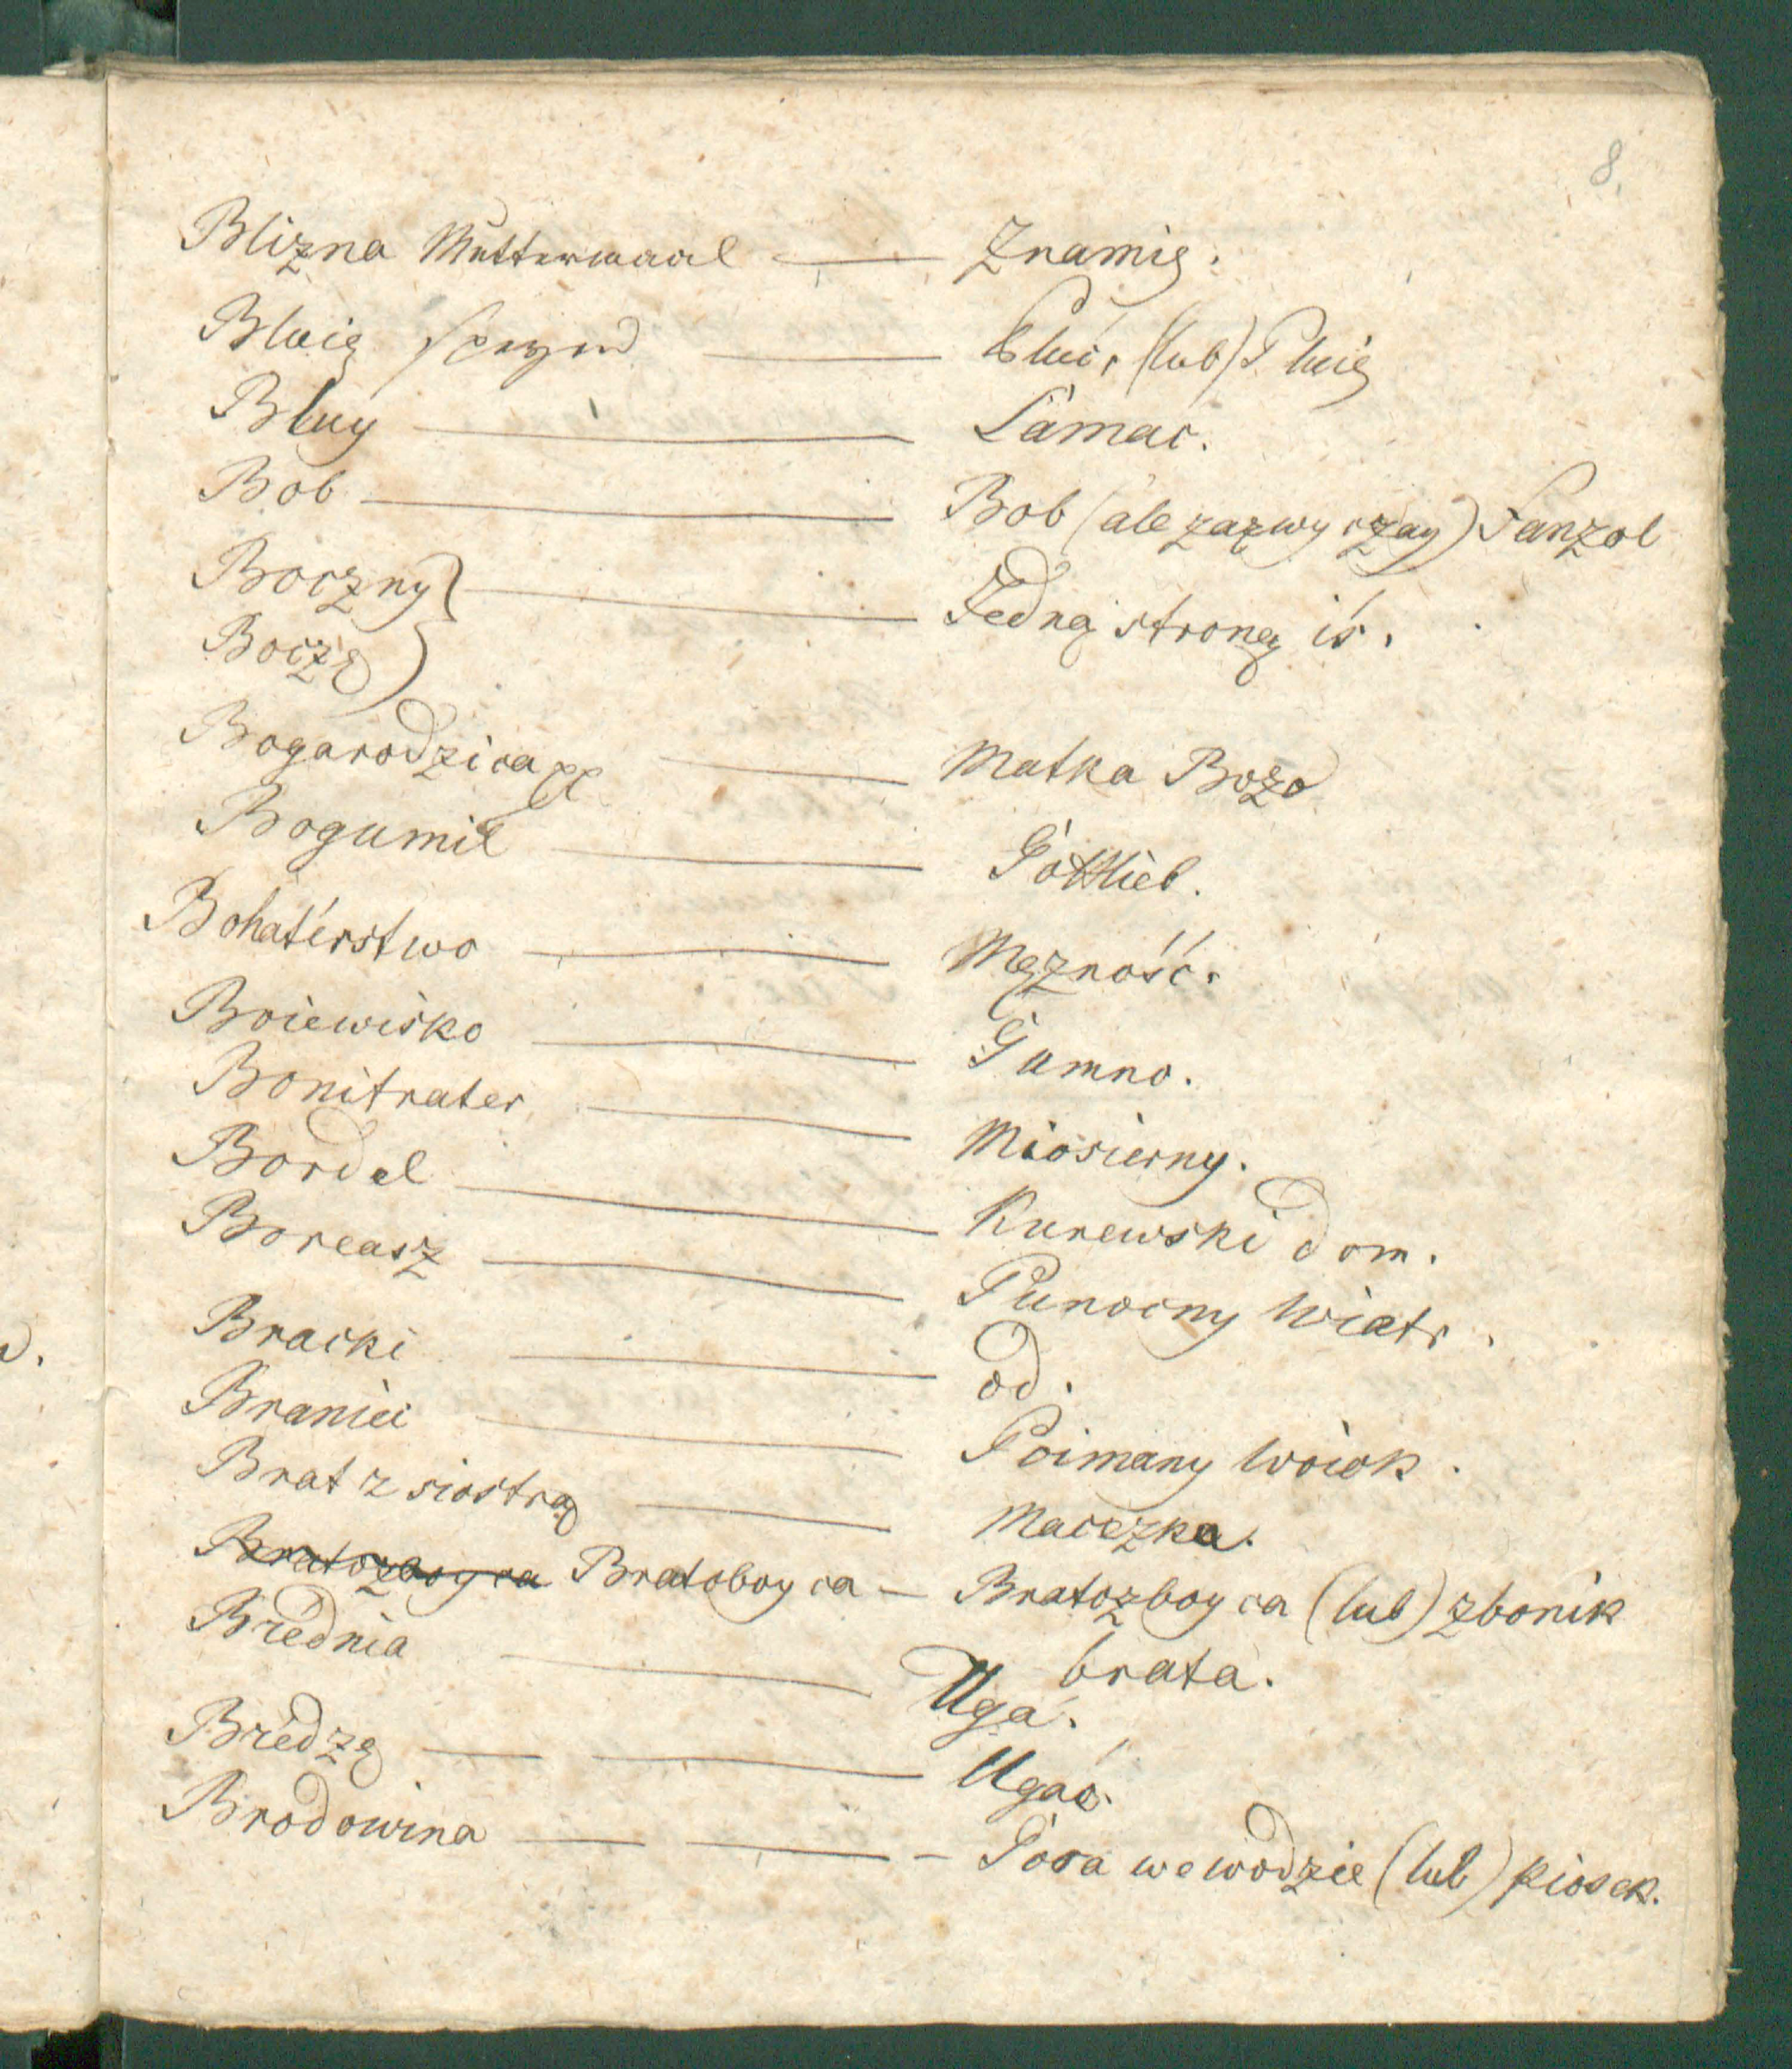 8.
Blizna Muttermaal — Znamię.
Bluię — Pluć, (lub) Pluię
Bluy — Łamać.
Bob — Bob (ale zazwyczay) Fanzol
Boczny } — Jedną stroną iś.
Boczę }
Bogarodzica — Matka Bozo
Bogumił — Gottlieb.
Bohatérstwo — Męzność.
Boiewisko — Gumno.
Bonitrater — Miosierny.
Bordel — Kurewski dom.
Boreasz — Punocny Wiatr.
Bracki — od.
Braniec — Poimany Woiok.
Brat z siostrą — Maceszka.
Bratozboyca Bratoboyca — Bratozboyca (lub) zbonik
brata.
Brednia — Ugá.
Bredzę — Ugać.
Brodowina — Gora we wodzie (lub) piosek.